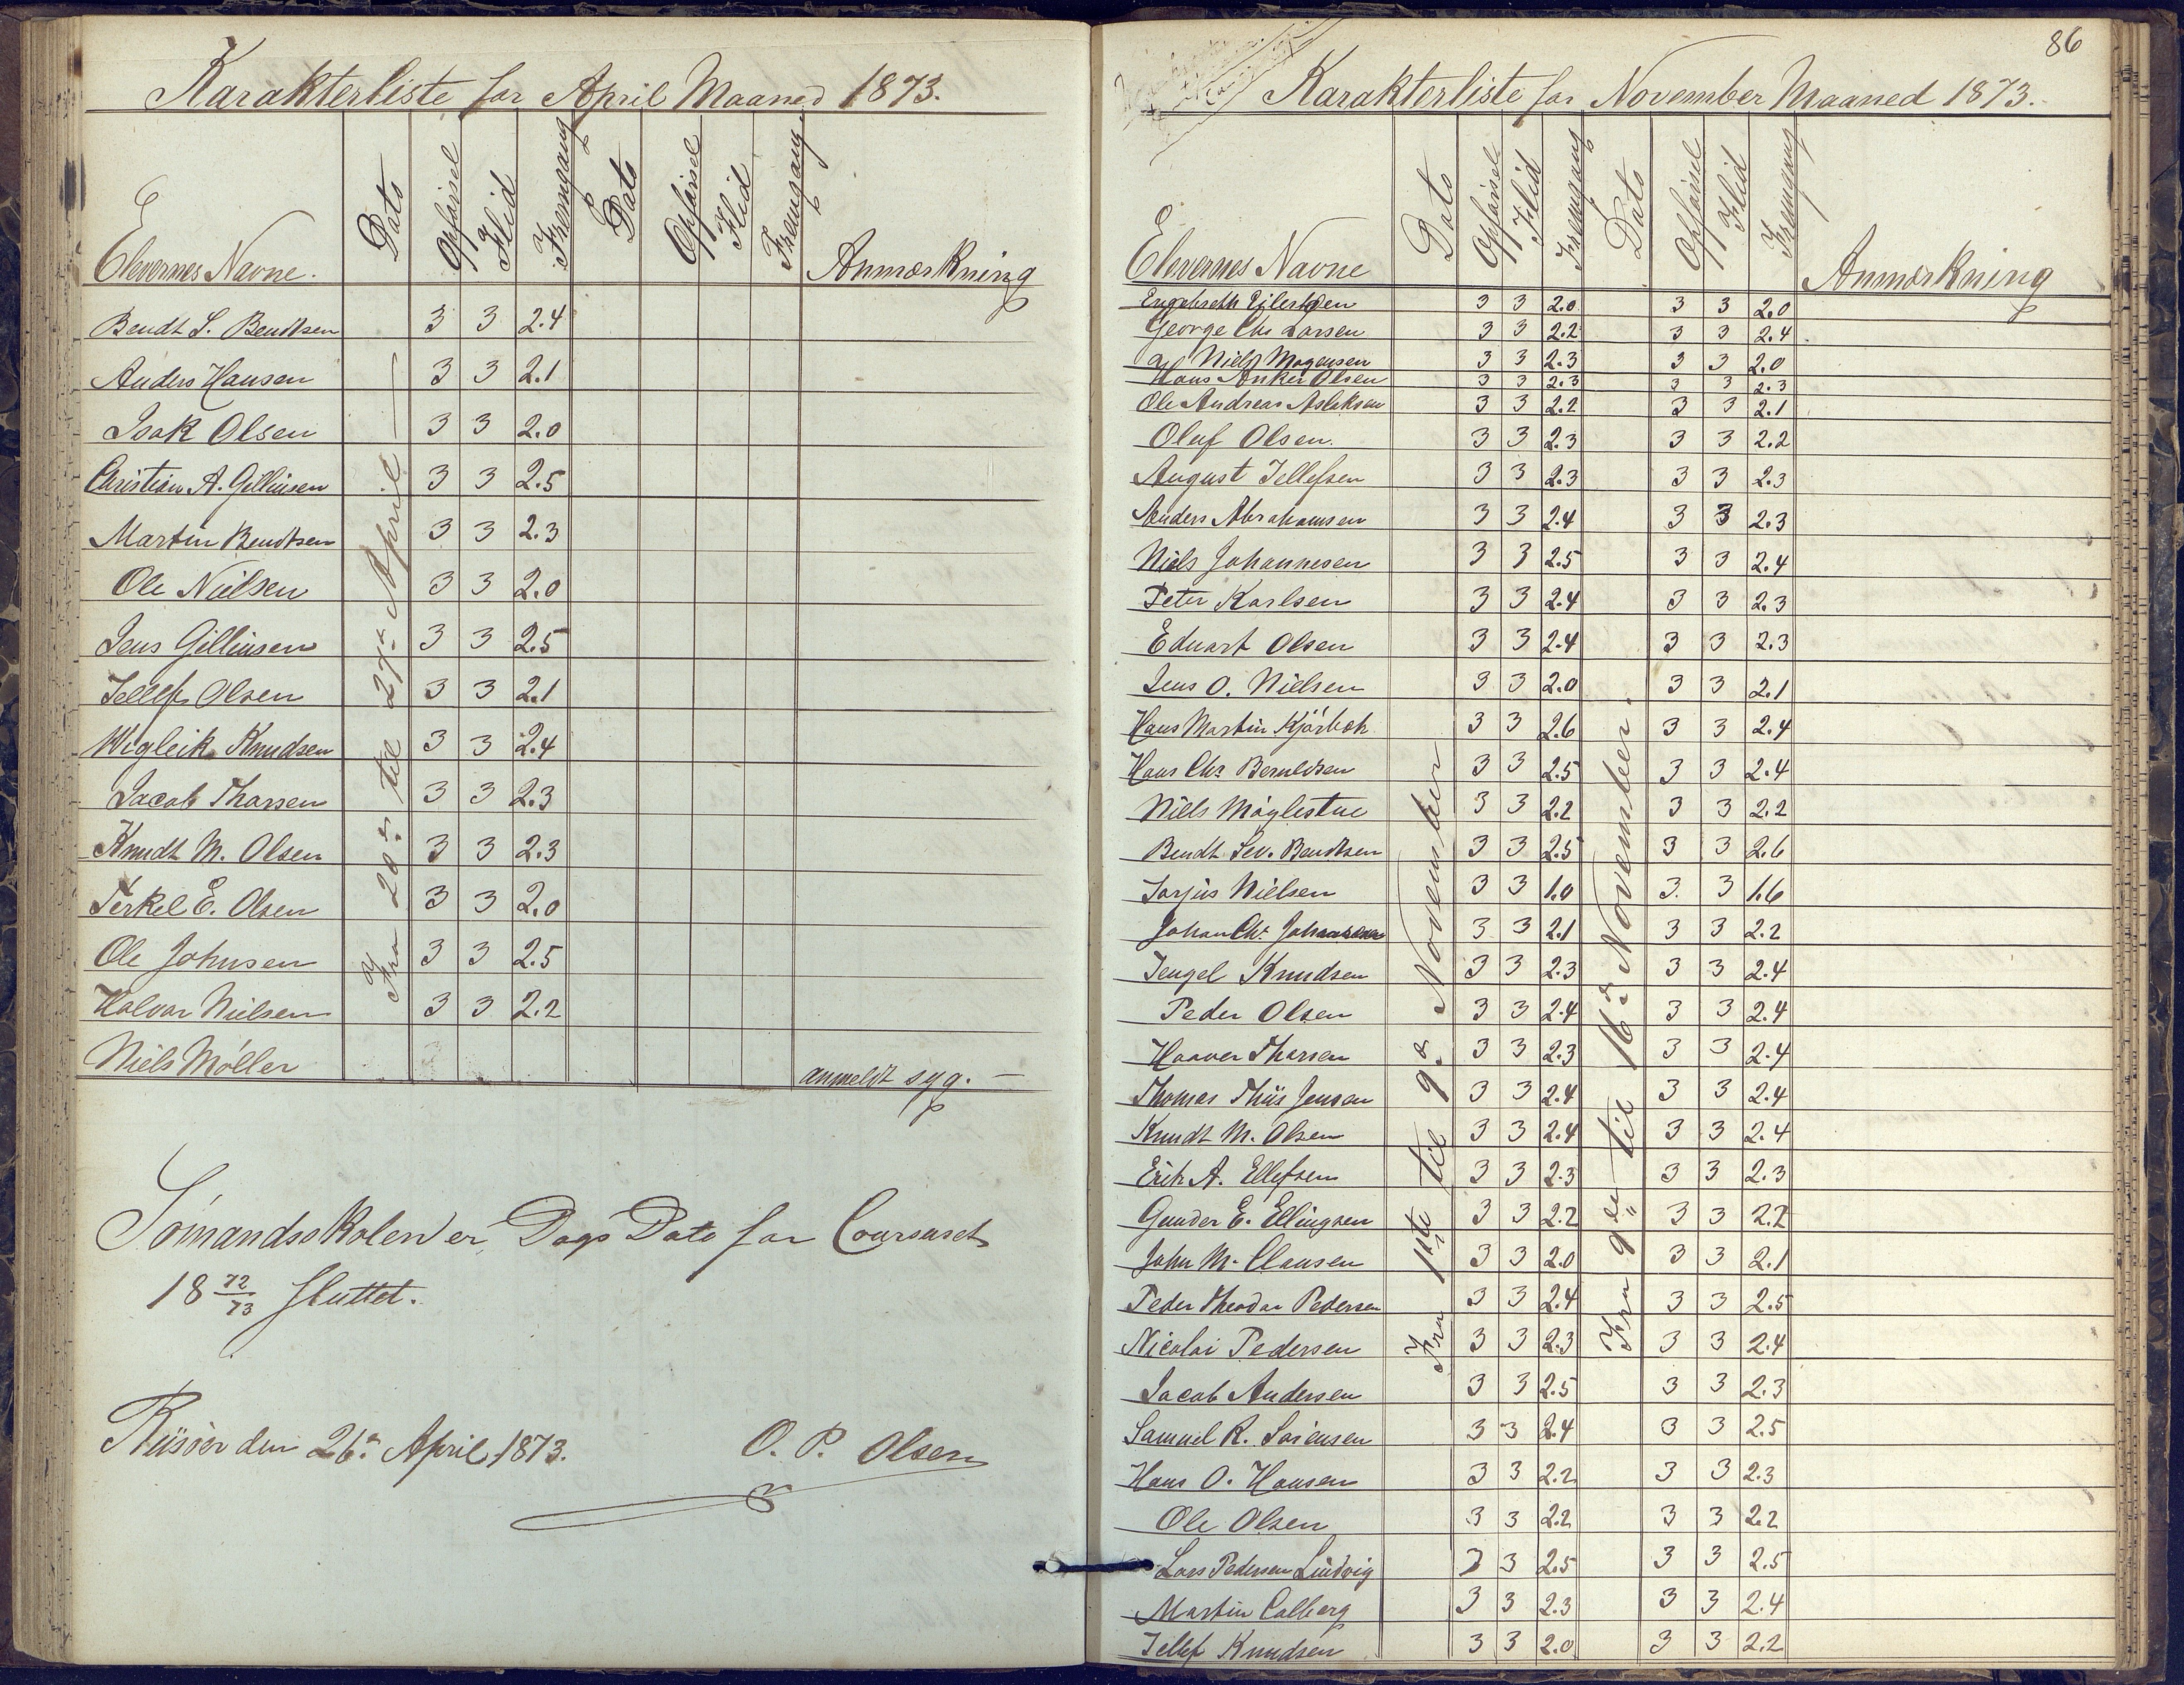 Karakterliste for April Maaned 1873.
Elevernes Navne. Dato Opförsel Flid Fremgang Dato Opförsel Flid Fremgang Anmærkning
Bendt S. Bendtsen 3 3 2.4
Anders Hansen 3 3 2.1
Isak Olsen 3 3 2.0
Christian A. Gillinsen 3 3 2.5
Martin Bendtsen 3 3 2.3
Ole Nielsen 3 3 2.0
Jens Gillinsen 3 3 2.5
Tellef Olsen 3 3 2.1
Wigleik Knudsen 3 3 2.4
Jacob Thorsen 3 3 2.3
Knudt M. Olsen 3 3 2.3
Terkel E. Olsen 3 3 2.0
Ole Johnsen 3 3 2.5
Halvor Nielsen 3 3 2.2
Niels Möller anmeldt syg. —
Fra 20de til 27de April —
Sömandsskolen er Dags Dato for Coursuset
18 72/73 sluttet.
Riisöer den 26de April 1873. O. P. Olsen
86
Karakterliste for November Maaned 1873.
Elevernes Navne Dato Opförsel Flid Fremgang Dato Opförsel Flid Fremgang Anmærkning
Engebreth Eilertsen 3 3 2.0 3 3 2.0
George Chr Larsen 3 3 2.2 3 3 2.4
Niels Mogensen 3 3 2.3 3 3 2.0
Hans Anker Olsen 3 3 2.3 3 3 2.3
Ole Andreas Aslaksen 3 3 2.2 3 3 2.1
Oluf Olsen. 3 3 2.3 3 3 2.2
August Tellefsen 3 3 2.3 3 3 2.3
Anders Abrahamsen 3 3 2.4 3 3 2.3
Niels Johannesen 3 3 2.5 3 3 2.4
Peter Karlsen 3 3 2.4 3 3 2.3
Eduart Olsen 3 3 2.4 3 3 2.3
Jens O. Nielsen 3 3 2.0 3 3 2.1
Hans Martin Kjörboh 3 3 2.6 3 3 2.4
Hans Chr. Beruldsen 3 3 2.5 3 3 2.4
Niels Möglestue 3 3 2.2 3 3 2.2
Bendt Sev. Bendtsen 3 3 2.5 3 3 2.6
Torjus Nielsen 3 3 1.0 3. 3 1.6
Johan Chr. Johannesen 3 3 2.1 3 3 2.2
Tengel Knudsen 3 3 2.3 3 3 2.4
Peder Olsen 3 3 2.4 3 3 2.4
Haaver Thorsen 3 3 2.3 3 3 2.4
Thomas Thiis Jensen 3 3 2.4 3 3 2.4
Knudt M. Olsen 3 3 2.4 3 3 2.4
Erik A. Ellefsen 3 3 2.3 3 3 2.3
Gunder E. Ellingsen 3 3 2.2 3 3 2.2
John M. Clausen 3 3 2.0 3 3 2.1
Peder Theodor Pedersen 3 3 2.4 3 3 2.5
Nicolai Pedersen 3 3 2.3 3 3 2.4
Jacob Andersen 3 3 2.5 3 3 2.3
Samuel R. Sörensen 3 3 2.4 3 3 2.5
Hans O. Hansen 3 3 2.2 3 3 2.3
Ole Olsen 3 3 2.2 3 3 2.2
Lars Pedersen Lindvig 3 3 2.5 3 3 2.5
Martin Calberg 3 3 2.3 3 3 2.4
Tellef Knudsen 3 3 2.0 3 3 2.2
Fra 1ste til 9de November
Fra 9de til 16de November.